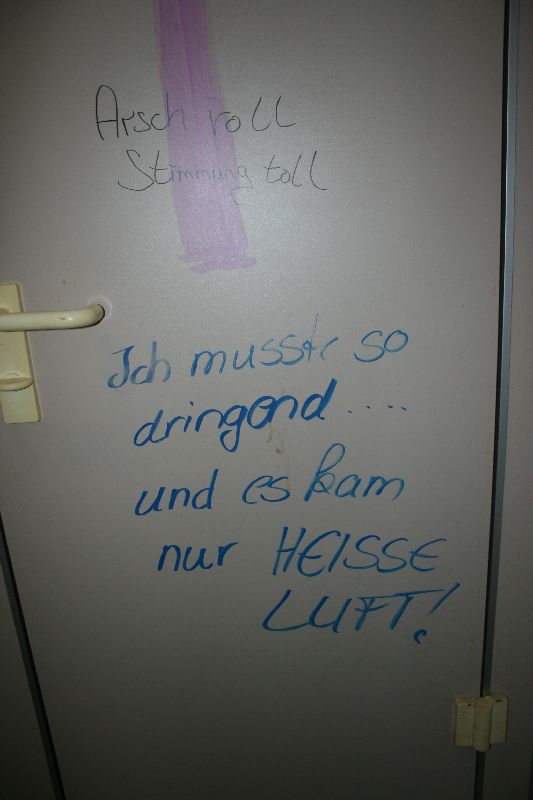 Arsch roll
Stimmung toll
Ich musste so
dringend....
und es kam
nur HEISSE
LUFT!